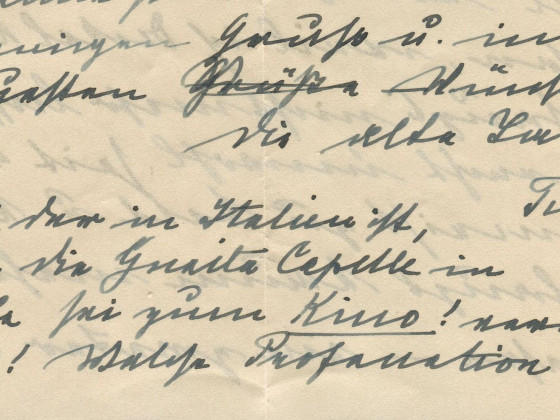 innigen Gruß u. in
besten Grüße Wünsch
Die alte
der in Italien ist,
die Gnaita Capelle in
sei zum Kino! 
! Welche Profanation